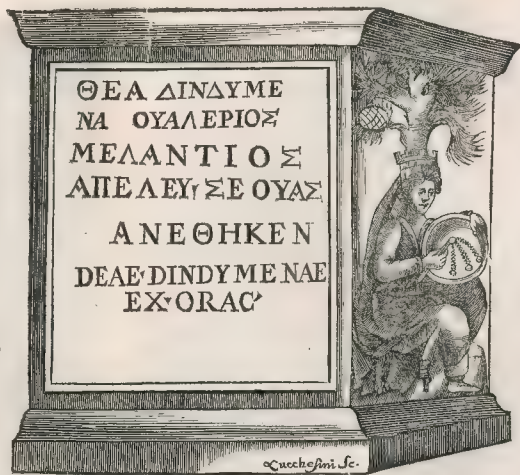 ΘΕΑ ΔΙΝΔΥΜΕ
ΝΑ ΟΥΑΛΕΡΙΟΣ
ΜΕΛΑΝΤΙΟΣ
ΑΠΕΛΕΥΣΕΟΥΑΣ
ΑΝΕΘΗΚΕΝ
DEAE·DINDYMENAE
EX·ORAC
Lucchesini Sc.